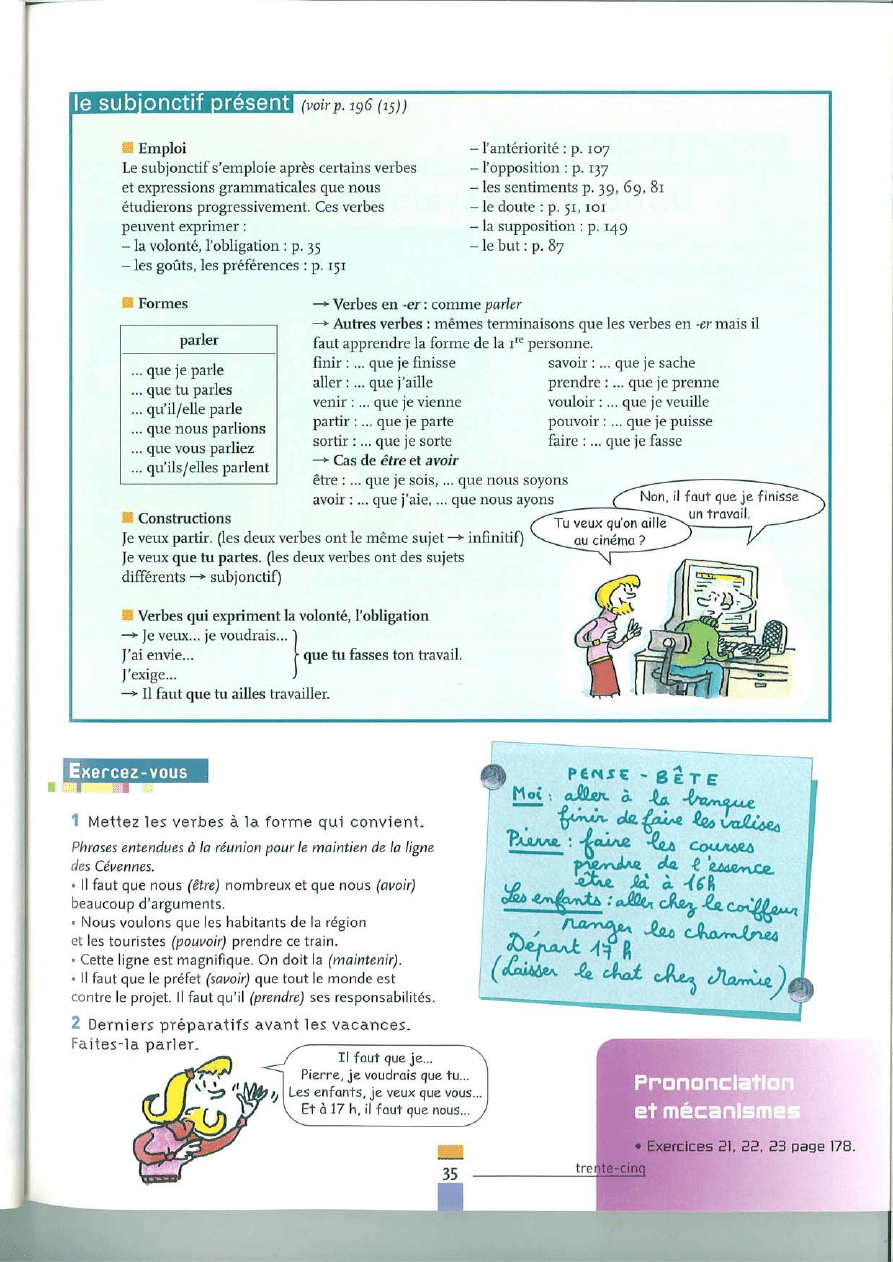 le subjonctif présent (voir p. 196 (15))
Emploi
Le subjonctif s'emploie après certains verbes
et expressions grammaticales que nous
étudierons progressivement. Ces verbes
peuvent exprimer :
– la volonté, l'obligation : p. 35
– les goûts, les préférences : p. 151
– l'antériorité : p. 107
– l'opposition : p. 137
– les sentiments p. 39, 69, 81
– le doute : p. 51, 101
– la supposition : p. 149
– le but : p. 87
Formes
parler
... que je parle
... que tu parles
... qu'il/elle parle
... que nous parlions
... que vous parliez
... qu'ils/elles parlent
→ Verbes en -er : comme parler
→ Autres verbes : mêmes terminaisons que les verbes en -er mais il
faut apprendre la forme de la 1re personne.
finir : ... que je finisse
aller : ... que j'aille
venir : ... que je vienne
partir : ... que je parte
sortir : ... que je sorte
savoir : ... que je sache
prendre : ... que je prenne
vouloir : ... que je veuille
pouvoir : ... que je puisse
faire : ... que je fasse
→ Cas de être et avoir
être : ... que je sois, ... que nous soyons
avoir : ... que j'aie, ... que nous ayons
Constructions
Je veux partir. (les deux verbes ont le même sujet → infinitif)
Je veux que tu partes. (les deux verbes ont des sujets
différents → subjonctif)
Tu veux qu'on aille
au cinéma ?
Non, il faut que je finisse
un travail.
Verbes qui expriment la volonté, l'obligation
→ Je veux... je voudrais...
J'ai envie...
J'exige...
que tu fasses ton travail.
→ Il faut que tu ailles travailler.
Exercez-vous
1 Mettez les verbes à la forme qui convient.
Phrases entendues à la réunion pour le maintien de la ligne
des Cévennes.
• Il faut que nous (être) nombreux et que nous (avoir)
beaucoup d'arguments.
• Nous voulons que les habitants de la région
et les touristes (pouvoir) prendre ce train.
• Cette ligne est magnifique. On doit la (maintenir).
• Il faut que le préfet (savoir) que tout le monde est
contre le projet. Il faut qu'il (prendre) ses responsabilités.
2 Derniers préparatifs avant les vacances.
Faites-la parler.
Il faut que je...
Pierre, je voudrais que tu...
Les enfants, je veux que vous...
Et à 17 h, il faut que nous...
PENSE - BÊTE
Moi : aller à la banque
finir de faire les valises
Pierre : faire les courses
prendre de l'essence
être là à 16h
Les enfants : aller chez le coiffeur
ranger les chambres
Départ 17 h
(Laisser le chat chez Mamie)
Prononciation
et mécanismes
• Exercices 21, 22, 23 page 178.
35
trente-cinq